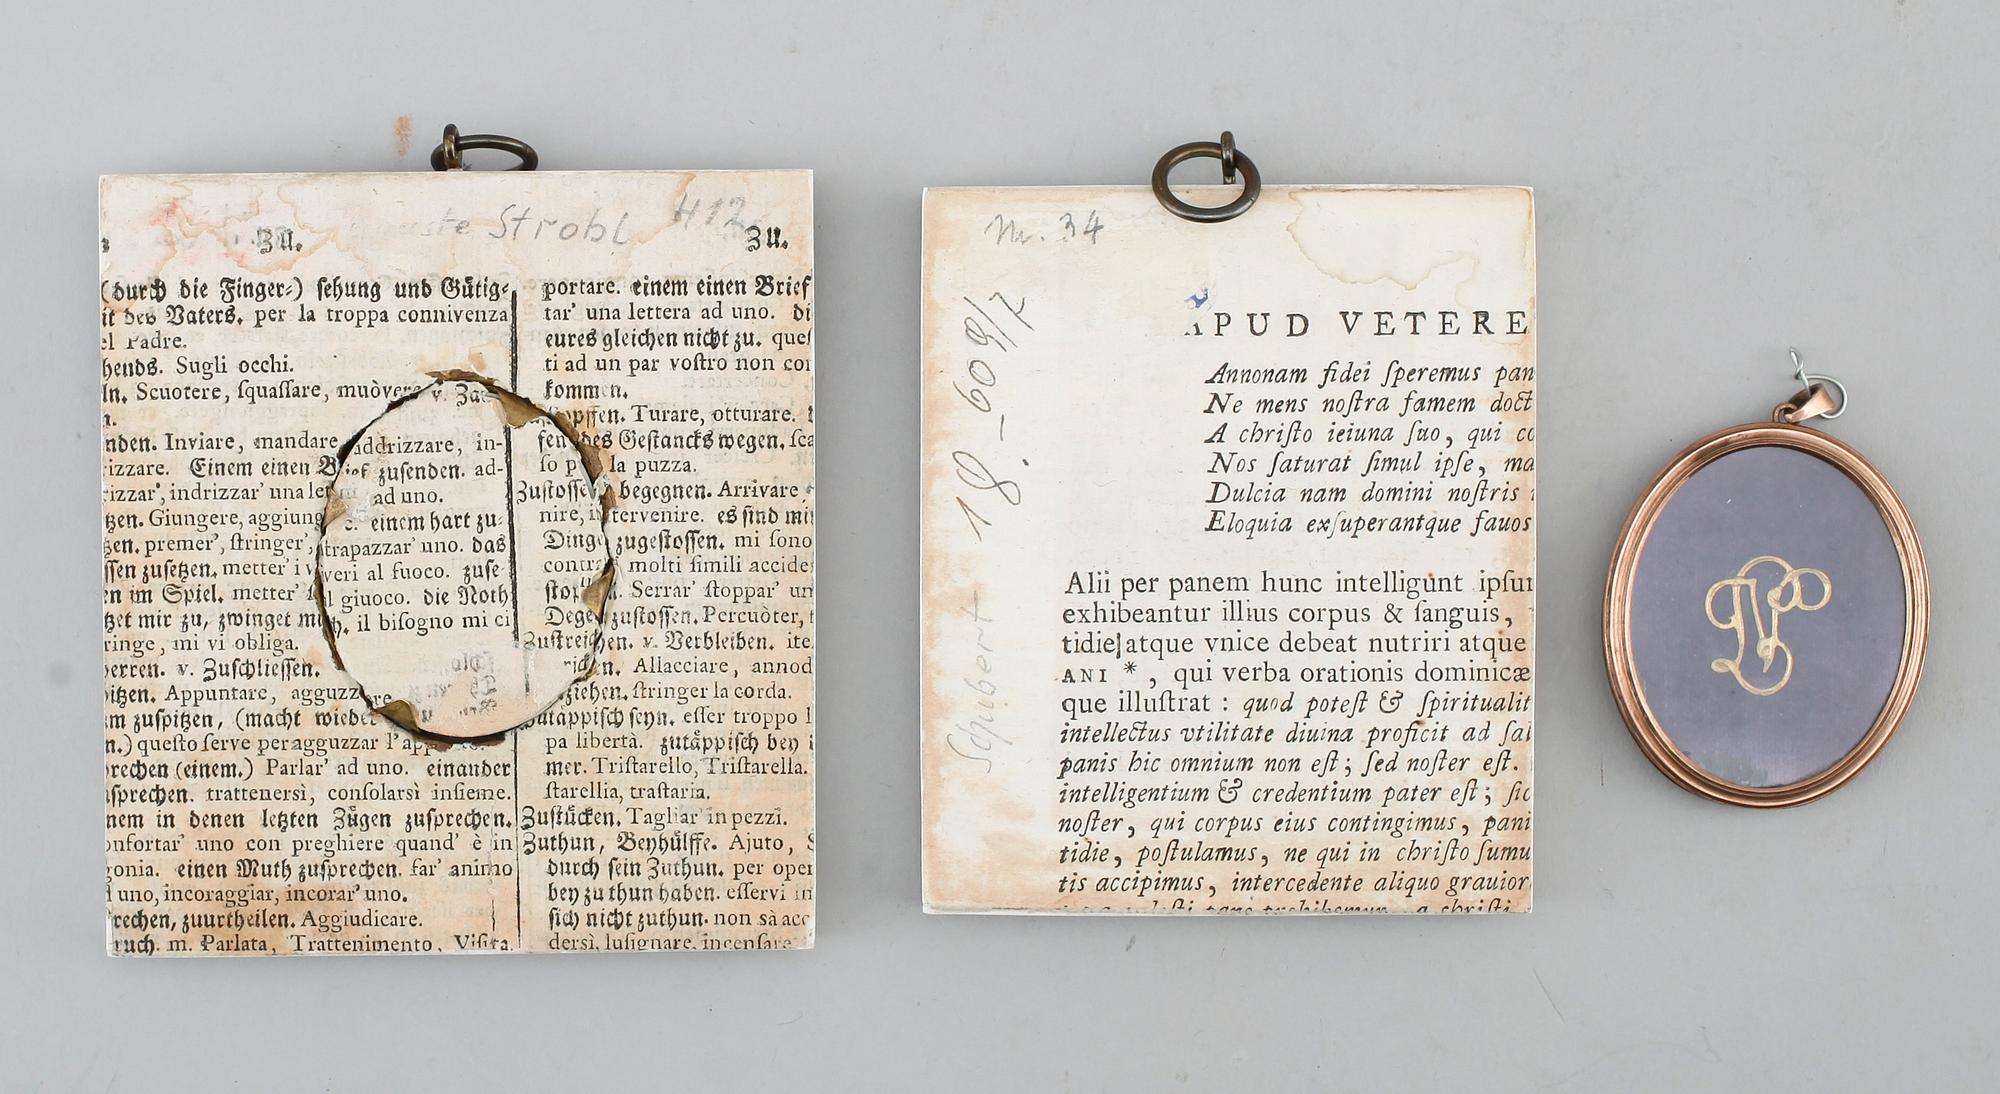 Strobl 412
Zu. Zu.
(durch die Finger-) sehung und Gütig-
it des Vaters. per la troppa connivenza
el Padre.
hends. Sugli occhi.
ln. Scuotere, ſquaſſare, muòvere v. Zau
n.
nden. Inviare, mandare
rizzare. Einem einen Brief zuſenden. ad-
addrizzare, in-
rizzar', indrizzar' una let ad uno.
tzen. Giungere, aggiung e. einem hart zu-
tzen. premer', ſtringer', ſtrapazzar' uno. das
ſſen zuſetzen. metter' i viveri al fuoco. zuſe-
n im Spiel. metter' al giuoco. die Noth
tzet mir zu, zwinget mich. il biſogno mi ci
ringe, mi vi obliga.
erren. v. Zuſchlieſſen.
itzen. Appuntare, aguzzare
m zuſpitzen, (macht wieder
n.) queſto ſerve per agguzzar l'appetito.
rechen (einem.) Parlar' ad uno. einander
ſprechen. trattenersì, conſolarsì inſieme.
nem in denen letzten Zügen zuſprechen.
onfortar' uno con preghiere quand' è in
gonia. einen Muth zuſprechen. far' animo
d uno, incoraggiar, incorar' uno.
rechen, zuurtheilen. Aggiudicare.
ruch. m. Parlata, Trattenimento, Viſita.
portare. einem einen Brief
tar' una lettera ad uno. di
eures gleichen nicht zu. queſ
ti ad un par voſtro non con
kommen.
ſtopffen. Turare, otturare.
fen des Geſtancks wegen. ſca
ſo p la puzza.
Zuſtoſſen, begegnen. Arrivare
nire, intervenire. es ſind mir
Dinge zugeſtoſſen. mi ſono
contra molti ſimili accide
ſtopf. Serrar' ſtoppar' un
Degen zuſtoſſen. Percuòter, t
Zuſtreichen. v. Verbleiben. ite
richen. Allacciare, annod
ziehen. ſtringer la corda.
Zutäppiſch ſeyn. eſſer troppo l
pa libertà. zutäppiſch bey i
mer. Triſtarello, Triſtarella.
ſtarellia, traſtaria.
Zuſtücken. Tagliar' in pezzi.
Zuthun, Beyhülffe. Ajuto, S
durch ſein Zuthun. per oper
bey zu thun haben. eſſervi in
ſich nicht zuthun. non sà acc
dersì, luſignare, incenſare
Nr. 34
18.-609/7
Schubert
APUD VETERE
Annonam fidei ſperemus pan
Ne mens noſtra famem doct
A chriſto ieiuna ſuo, qui co
Nos ſaturat ſimul ipſe, ma
Dulcia nam domini noſtris
Eloquia exſuperantque fauos
Alii per panem hunc intelligunt ipſum
exhibeantur illius corpus & ſanguis,
tidie atque vnice debeat nutriri atque
ANI *, qui verba orationis dominicæ
que illuſtrat : quod poteſt & ſpiritualit
intellectus vtilitate diuina proficit ad ſal
panis hic omnium non eſt; ſed noſter eſt.
intelligentium & credentium pater eſt; ſic
noſter, qui corpus eius contingimus, pani
tidie, poſtulamus, ne qui in chriſto ſumu
tis accipimus, intercedente aliquo grauior